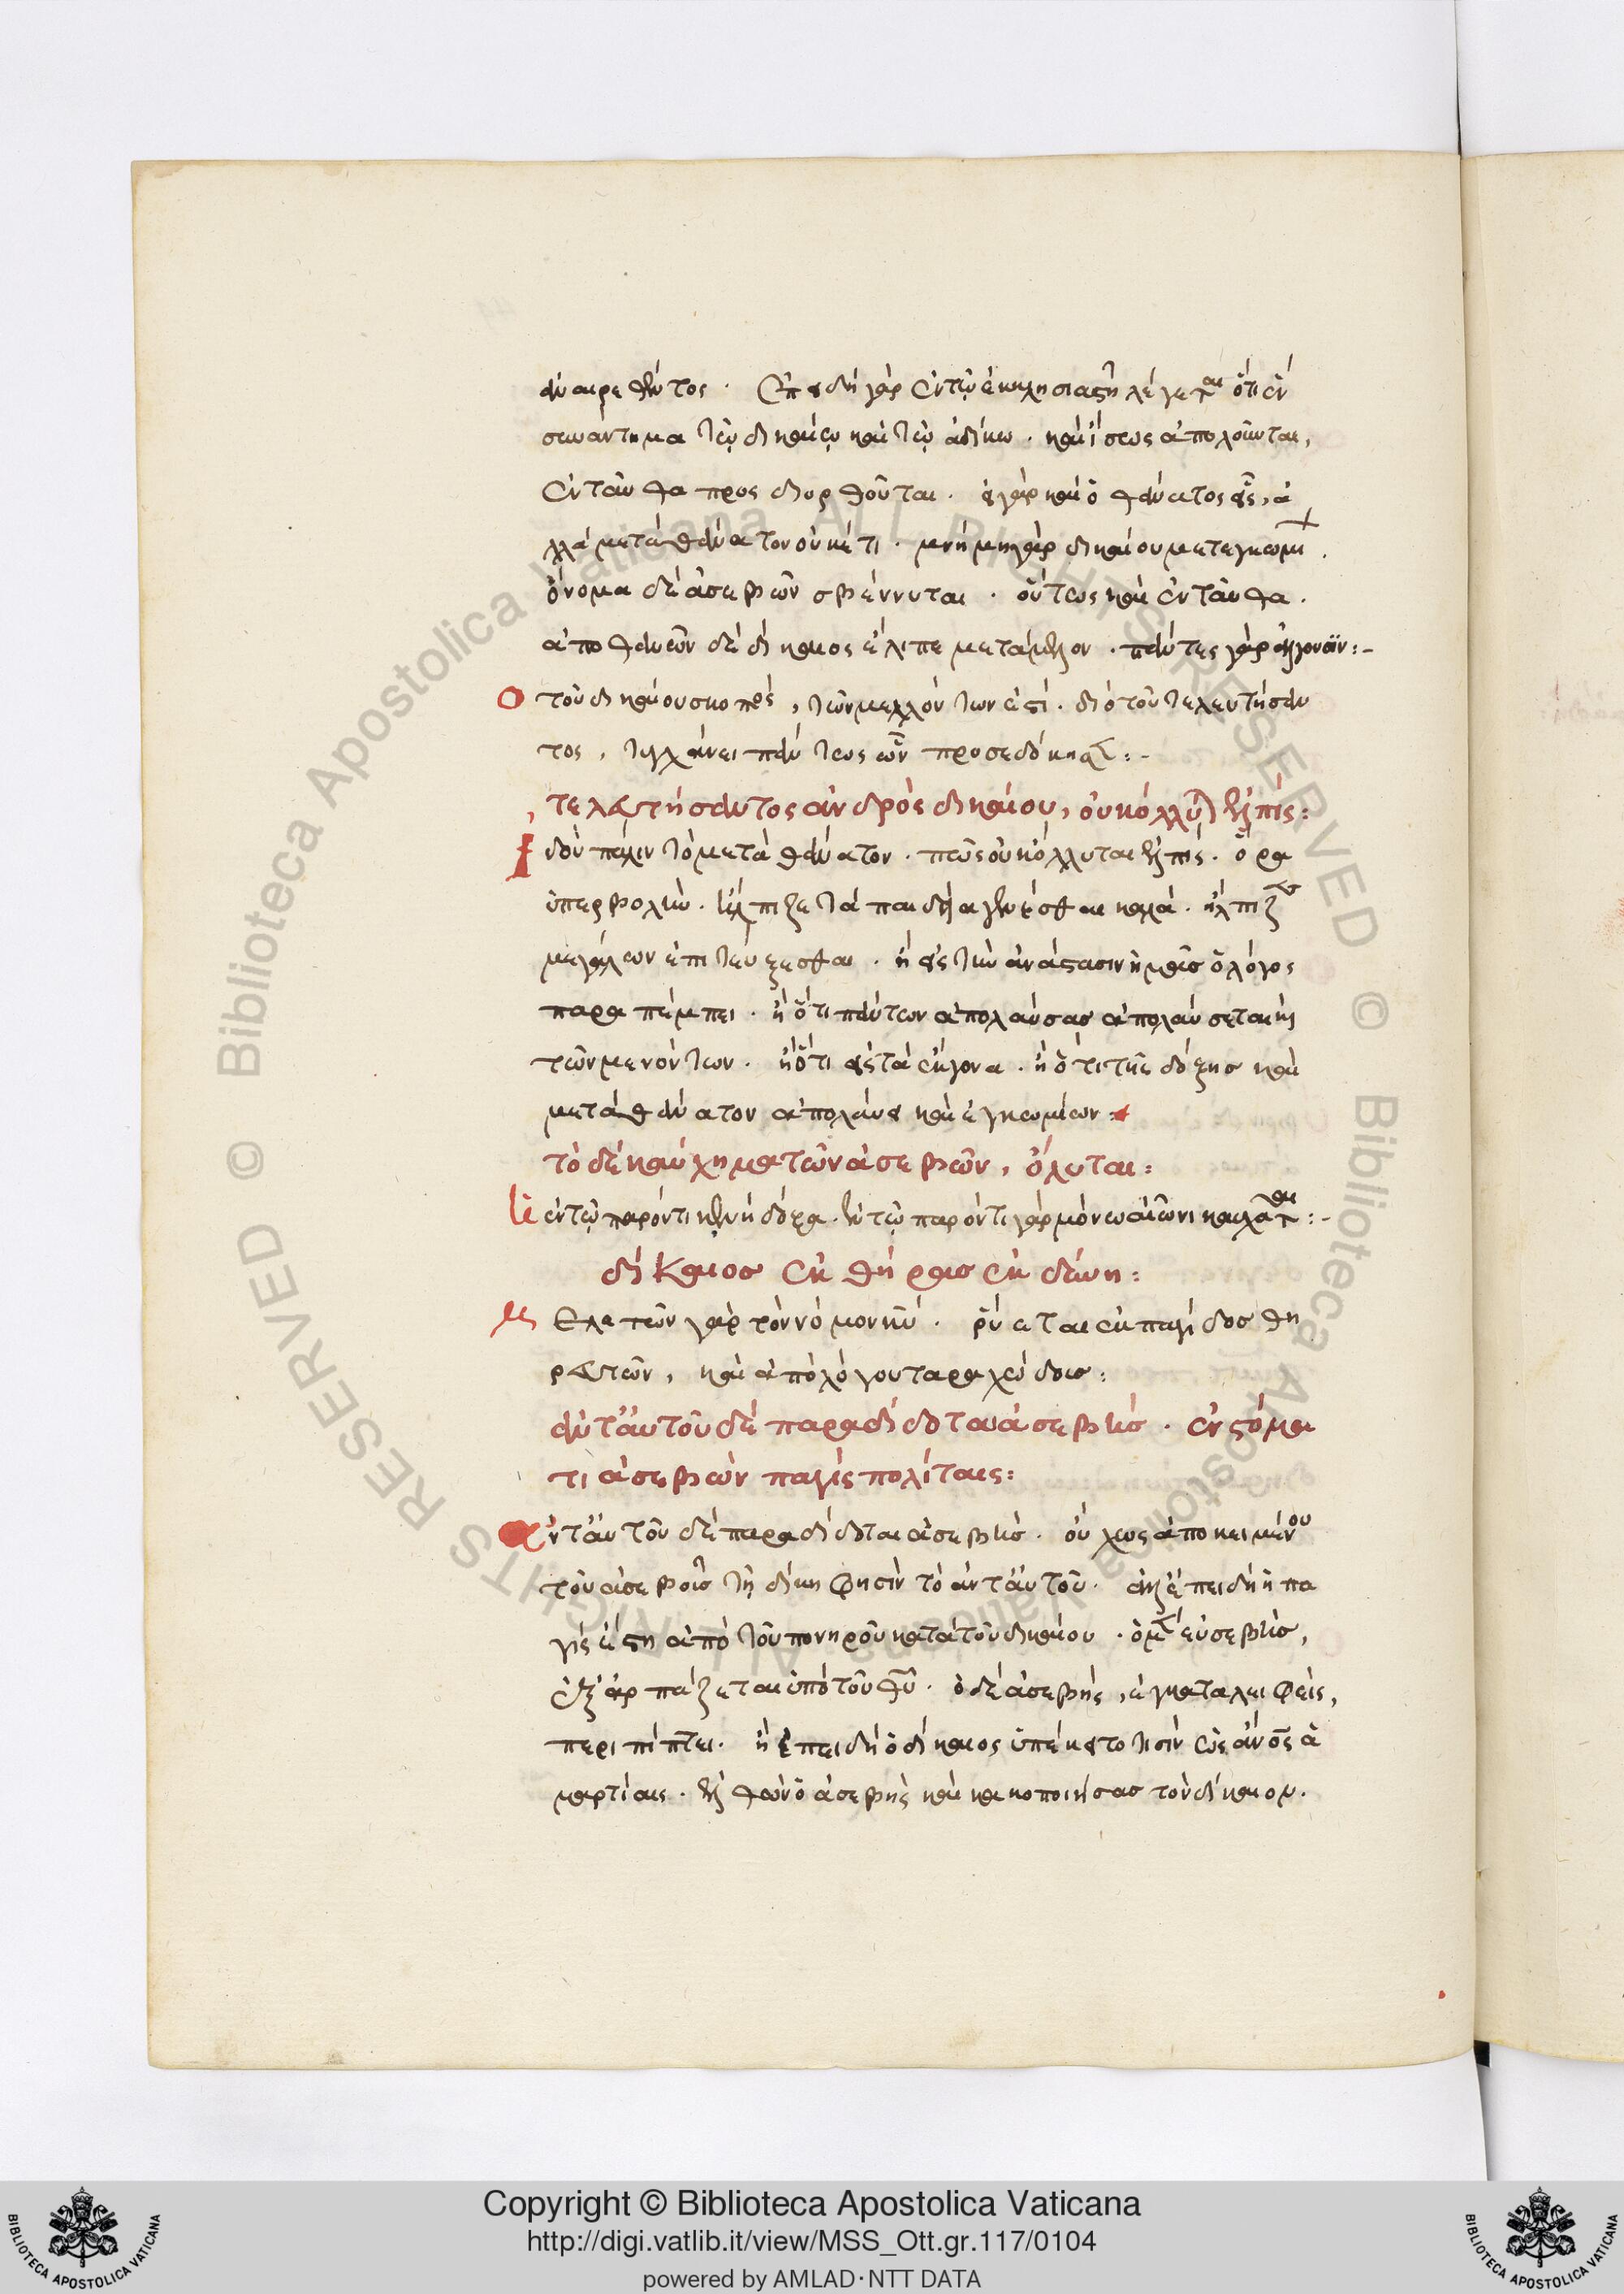 ἀναιρεθέντος · Ἐπειδὴ γὰρ ἐν τῷ ἐκκλησιαστῇ λέγεται ὅτι ἓν
συνάντημα τῷ δικαίῳ καὶ τῷ ἀδίκω · καὶ ἴσως ἀπολοῦνται,
ἐνταῦθα προσδιορθοῦται · εἰ γὰρ καὶ ὁ θάνατος εἷς, ἀ
λλὰ μετὰ θάνατον οὐκέτι · μνήμη γὰρ δικαίου μετ' ἐγκωμί
ὄνομα δὲ ἀσεβῶν σβέννυται · οὕτως καὶ ἐνταῦθα ·
ἀποθανὼν δὲ δίκαιος ἔλιπε μετάμελον · πάντες γὰρ :-
Ο τοῦ δικαίου σκοπὸς, τῶν μελλόντων ἐστί · διὸ τοῦ τελευτήσαν
τος, τυγχάνει πάντως ὧν προσεδόκησ :-
τελευτήσαντος ἀνδρὸς δικαίου, οὐκ ὄλλυται ἐλπίς :
Ιδοὺ πάλιν τὸ μετὰ θάνατον · πῶς οὐκ ὄλλυται ἐλπίς · ὅρα
ὑπερβολὴν · ἤλπιζε τὰ παιδία γενέσθαι καλά · ἤλπιζεν
μεγάλων ἐπιτεύξεσθαι · ἢ εἰς τὴν ἀνάστασιν ἡμᾶς ὁ λόγος
παραπέμπει · ἢ ὅτι πάντων ἀπολαύσας ἀπολαύσεται καὶ
τῶν μενόντων · ἢ ὅτι εἰς τὰ ἔκγονα · ἢ ὅτι τῆς δόξης καὶ
μετὰ θάνατον ἀπολαύει καὶ ἐγκωμίων :
τὸ δὲ καύχημα τῶν ἀσεβῶν, ὄλυται :
ἐν τῷ παρόντι κενὴ δόξα · ἐν τῷ παρόντι γὰρ μόνω αἰῶνι καυχᾶται :-
δίκαιος ἐκ θήρας ἐκδύνη :
Μελετῶν γὰρ τὸν νόμον κυ · ῥύεται ἐκ παγίδος θη
ρευτῶν, καὶ ἀπὸ λόγου ταραχώδους :
ἀντ' αὐτοῦ δὲ παραδίδοται ἀσεβής · ἐν στόμα
τι ἀσεβῶν παγὶς πολίταις :
ἀντ' αὐτοῦ δὲ παραδίδοται ἀσεβής · οὐχ ὡς ἀποκειμένου
τοῦ ἀσεβοῦς τῇ δίκη φησὶν τὸ ἀντ' αὐτοῦ · ἀλλ' ἐπειδὴ ἡ πα
γὶς ἔστη ἀπὸ τοῦ πονηροῦ κατὰ τοῦ δικαίου · ὁ μὲν εὐσεβὴς,
ἐξαρπάζεται ὑπὸ τοῦ θυ · ὁ δὲ ἀσεβὴς, ἐγκαταλειφθεὶς,
περιπίπτει · ἢ ἐπειδὴ ὁ δίκαιος ὑπέκειτο τισὶν ὡς ανος ἁ
μαρτίαις · ἐλθὼν ὁ ἀσεβὴς καὶ κακοποιήσας τὸν δίκαιον ·
Copyright © Biblioteca Apostolica Vaticana
http://digi.vatlib.it/view/MSS_Ott.gr.117/0104
powered by AMLAD · NTT DATA